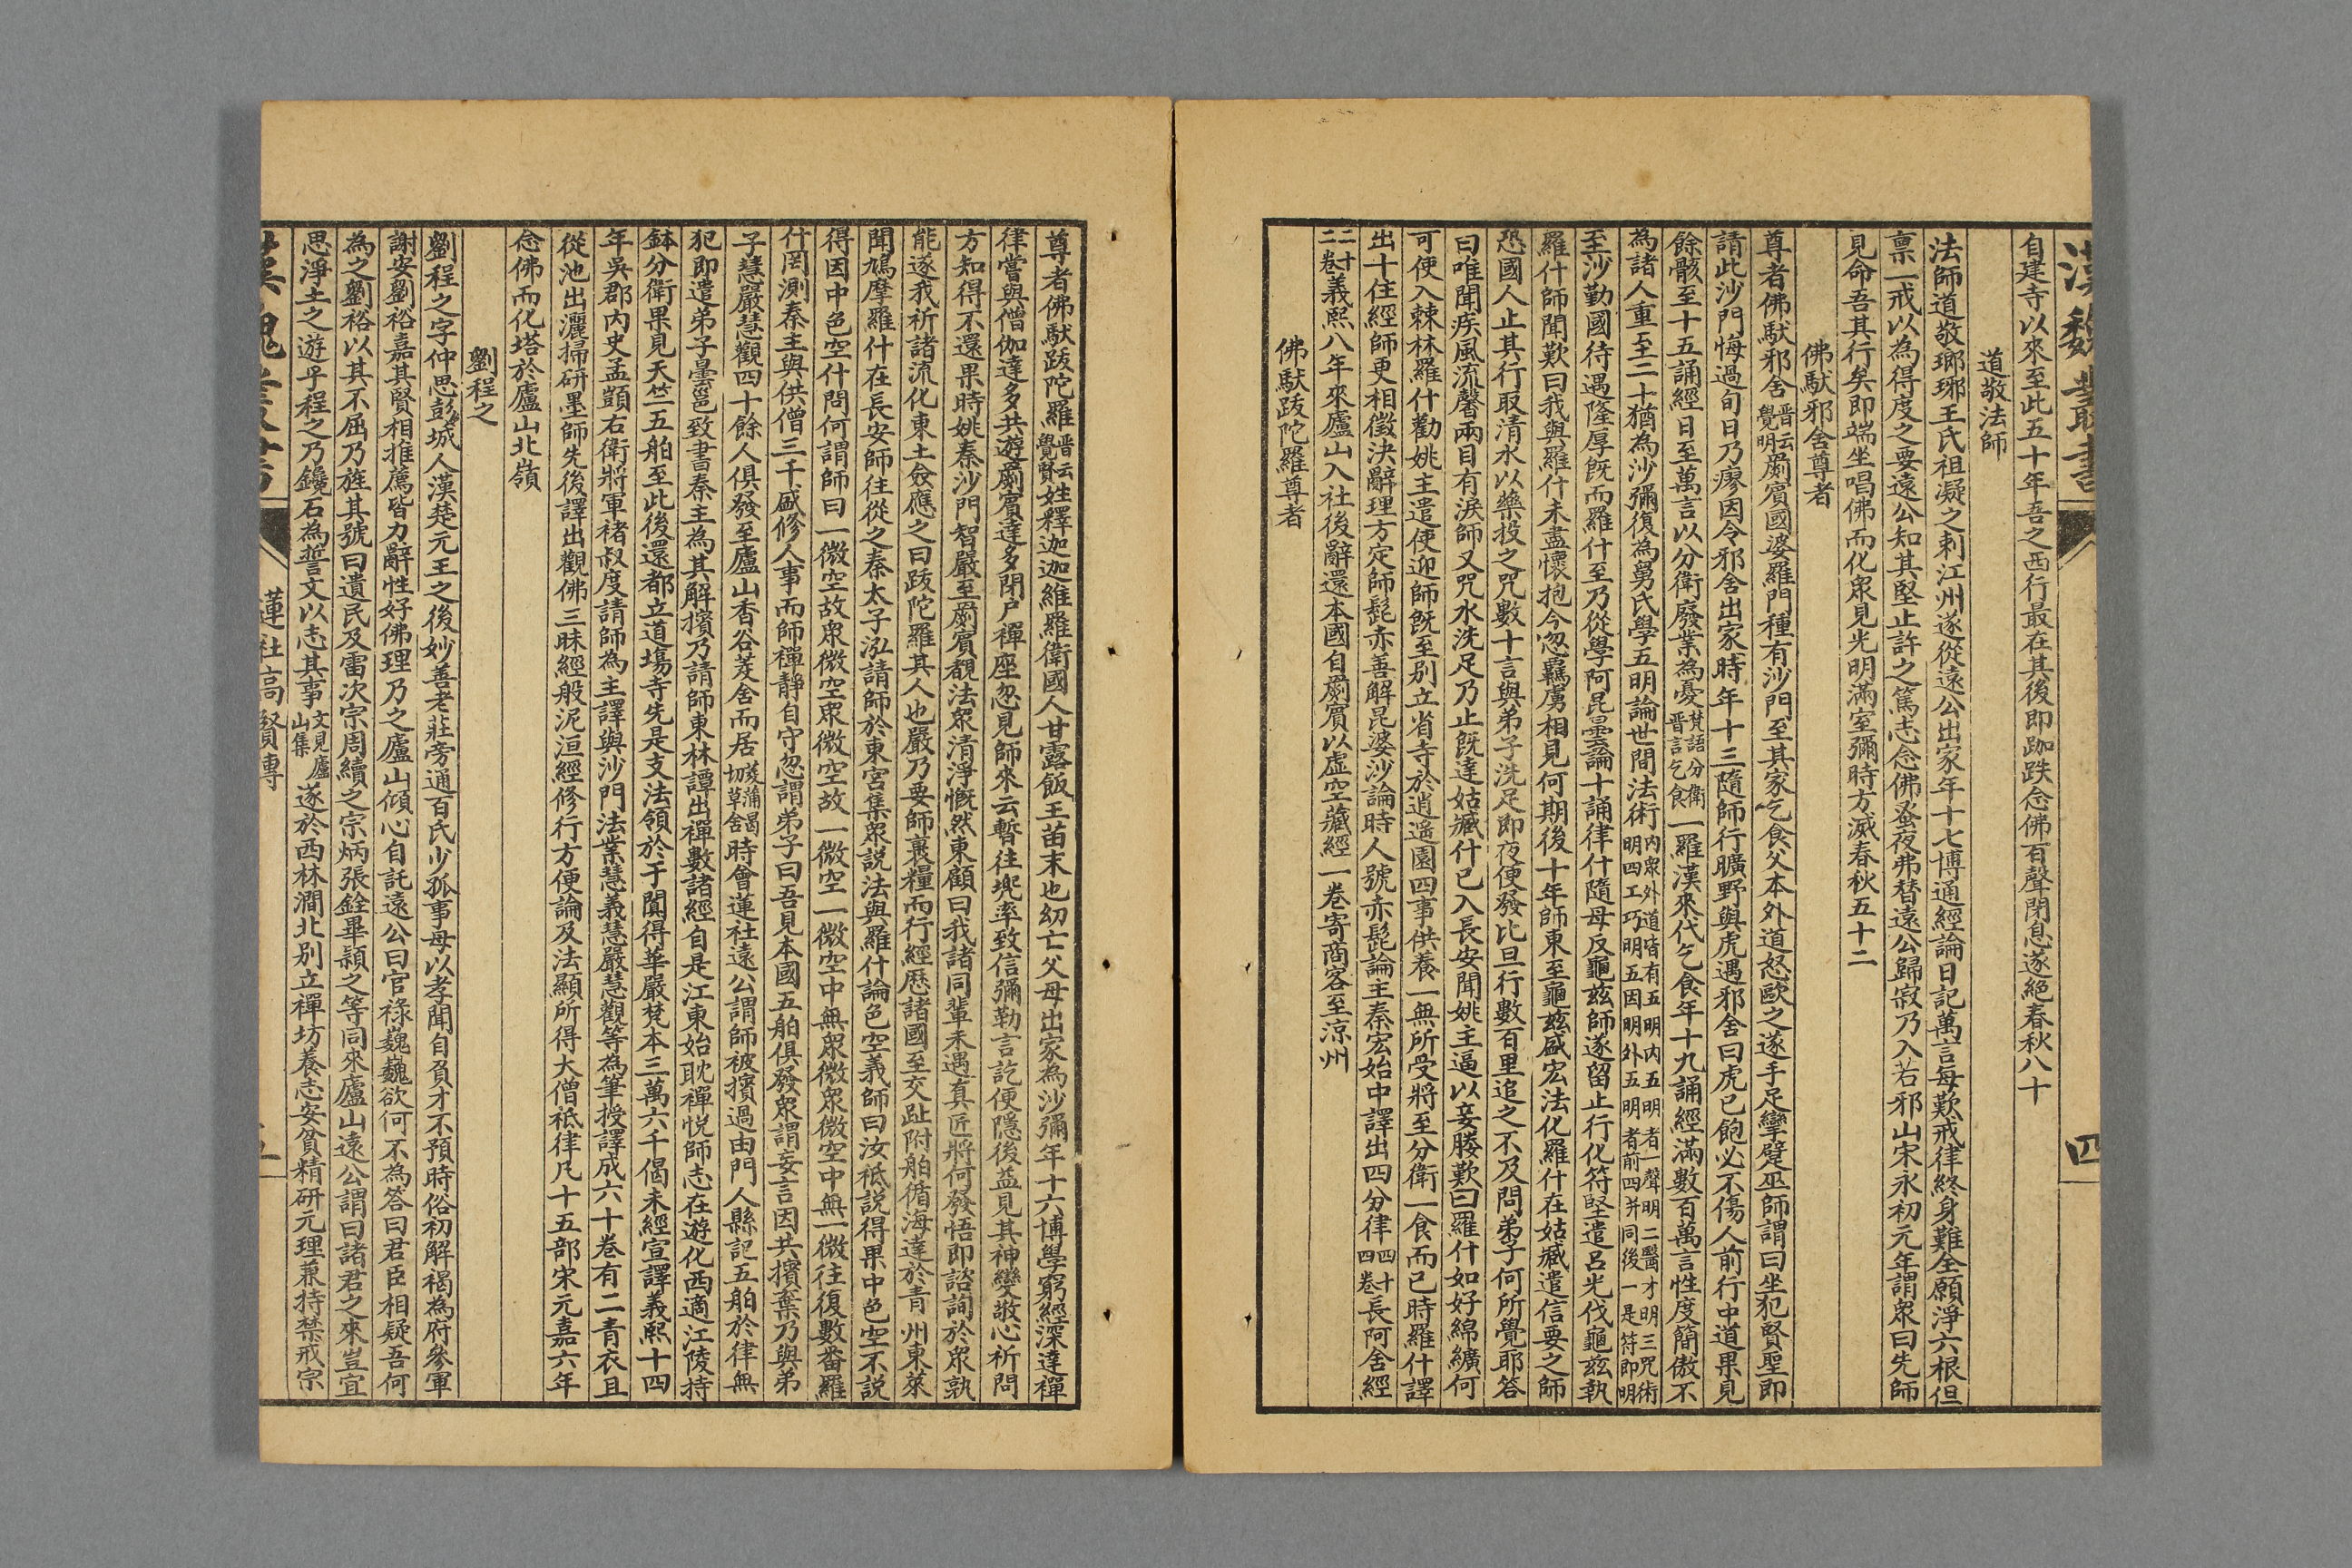 漢魏叢書
四
自建寺以來至此五十年吾之西行最在其後即跏趺念佛百聲閉息遂絕春秋八十
道敬法師
法師道敬瑯琊王氏祖凝之刺江州遂從遠公出家年十七博通經論日記萬言每歎戒律終身難全願淨六根但
禀一戒以為得度之要遠公知其堅止許之篤志念佛蚤夜弗替遠公歸寂乃入若邪山宋永初元年謂衆曰先師
見命吾其行矣即端坐唱佛而化衆見光明滿室彌時方滅春秋五十二
佛馱邪舍尊者
尊者佛馱邪舍晉云覺明罽賓國婆羅門種有沙門至其家乞食父本外道怒毆之遂手足攣躄巫師謂曰坐犯賢聖即
請此沙門悔過旬日乃瘳因令邪舍出家時年十三隨師行曠野與虎遇邪舍曰虎已飽必不傷人前行中道果見
餘骸至十五誦經日至萬言以分衛廢業為憂梵語分衛晉言乞食一羅漢來代乞食年十九誦經滿數百萬言性度簡傲不
為諸人重至二十猶為沙彌復為舅氏學五明論世間法術內衆外道皆有五明內五明者一聲明二醫方明三咒術明四工巧明五因明外五明者前四并同後一是符即明
至沙勤國待遇隆厚既而羅什至乃從學阿毘曇論十誦律什隨母反龜茲師遂留止行化符堅遣呂光伐龜茲執
羅什師聞歎曰我與羅什未盡懷抱今忽羈虜相見何期後十年師東至龜茲盛宏法化羅什在姑臧遣信要之師
恐國人止其行取清水以藥投之咒數十言與弟子洗足即夜便發比旦行數百里追之不及問弟子何所覺耶答
曰唯聞疾風流聲兩目有淚師又咒水洗足乃止既達姑臧什已入長安聞姚主逼以妾媵歎曰羅什如好綿纊何
可使入棘林羅什勸姚主遣使迎師既至別立省寺於逍遙園四事供養一無所受將至分衛一食而已時羅什譯
出十住經師更相徵決辭理方定師髭赤善解毘婆沙論時人號赤髭論主秦宏始中譯出四分律四十四卷長阿含經
二十二卷義熙八年來廬山入社後辭還本國自罽賓以虛空藏經一卷寄商客至涼州
佛馱跋陀羅尊者
尊者佛馱跋陀羅晉云覺賢姓釋迦迦維羅衛國人甘露飯王苗末也幼亡父母出家為沙彌年十六博學窮經深達禪
律嘗與僧伽達多共遊罽賓達多閉戶禪座忽見師來云暫往兜率致信彌勒言訖便隱後益見其神變敬心祈問
方知得不還果時姚秦沙門智嚴至罽賓覩法衆清淨慨然東顧曰我諸同輩未遇真匠將何發悟即諮詢於衆孰
能遂我祈諸流化東土僉應之曰跋陀羅其人也嚴乃要師裹糧而行經歷諸國至交趾附舶循海達於青州東萊
聞鳩摩羅什在長安師往從之秦太子泓請師於東宮集衆説法與羅什論色空義師曰汝秪説得果中色空不説
得因中色空什問何謂師曰一微空故衆微空衆微空故一微空一微空中無衆微衆微空中無一微往復數番羅
什罔測秦主與供僧三千盛修人事而師禪靜自守忽謂弟子曰吾見本國五舶俱發衆謂妄言因共擯棄乃與弟
子慧嚴慧觀四十餘人俱發至廬山香谷茇舍而居茇蒲曷切草舍時會蓮社遠公謂師被擯過由門人縣記五舶於律無
犯即遣弟子曇邕致書秦主為其解擯乃請師東林譯出禪數諸經自是江東始耽禪悅師志在遊化西適江陵持
鉢分衛果見天竺五舶至此後還都立道場寺先是支法領於于闐得華嚴梵本三萬六千偈未經宣譯義熙十四
年吳郡內史孟顗右衛將軍褚叔度請師為主譯與沙門法業慧義慧嚴慧觀等為筆授譯成六十卷有二青衣旦
從池出灑掃研墨師先後譯出觀佛三昧經般泥洹經修行方便論及法顯所得大僧祇律凡十五部宋元嘉六年
念佛而化塔於廬山北嶺
劉程之
劉程之字仲思彭城人漢楚元王之後妙善老莊旁通百氏少孤事母以孝聞自負才不預時俗初解褐為府參軍
謝安劉裕嘉其賢相推薦皆力辭性好佛理乃之廬山傾心自託遠公曰官祿巍巍欲何不為答曰君臣相疑吾何
為之劉裕以其不屈乃旌其號曰遺民及雷次宗周續之宗炳張銓畢穎之等同來廬山遠公謂曰諸君之來豈宜
思淨土之遊乎程之乃鑱石為誓文以志其事文見廬山集遂於西林澗北別立禪坊養志安貧精研元理兼持禁戒宗
漢魏叢書
蓮社高賢傳